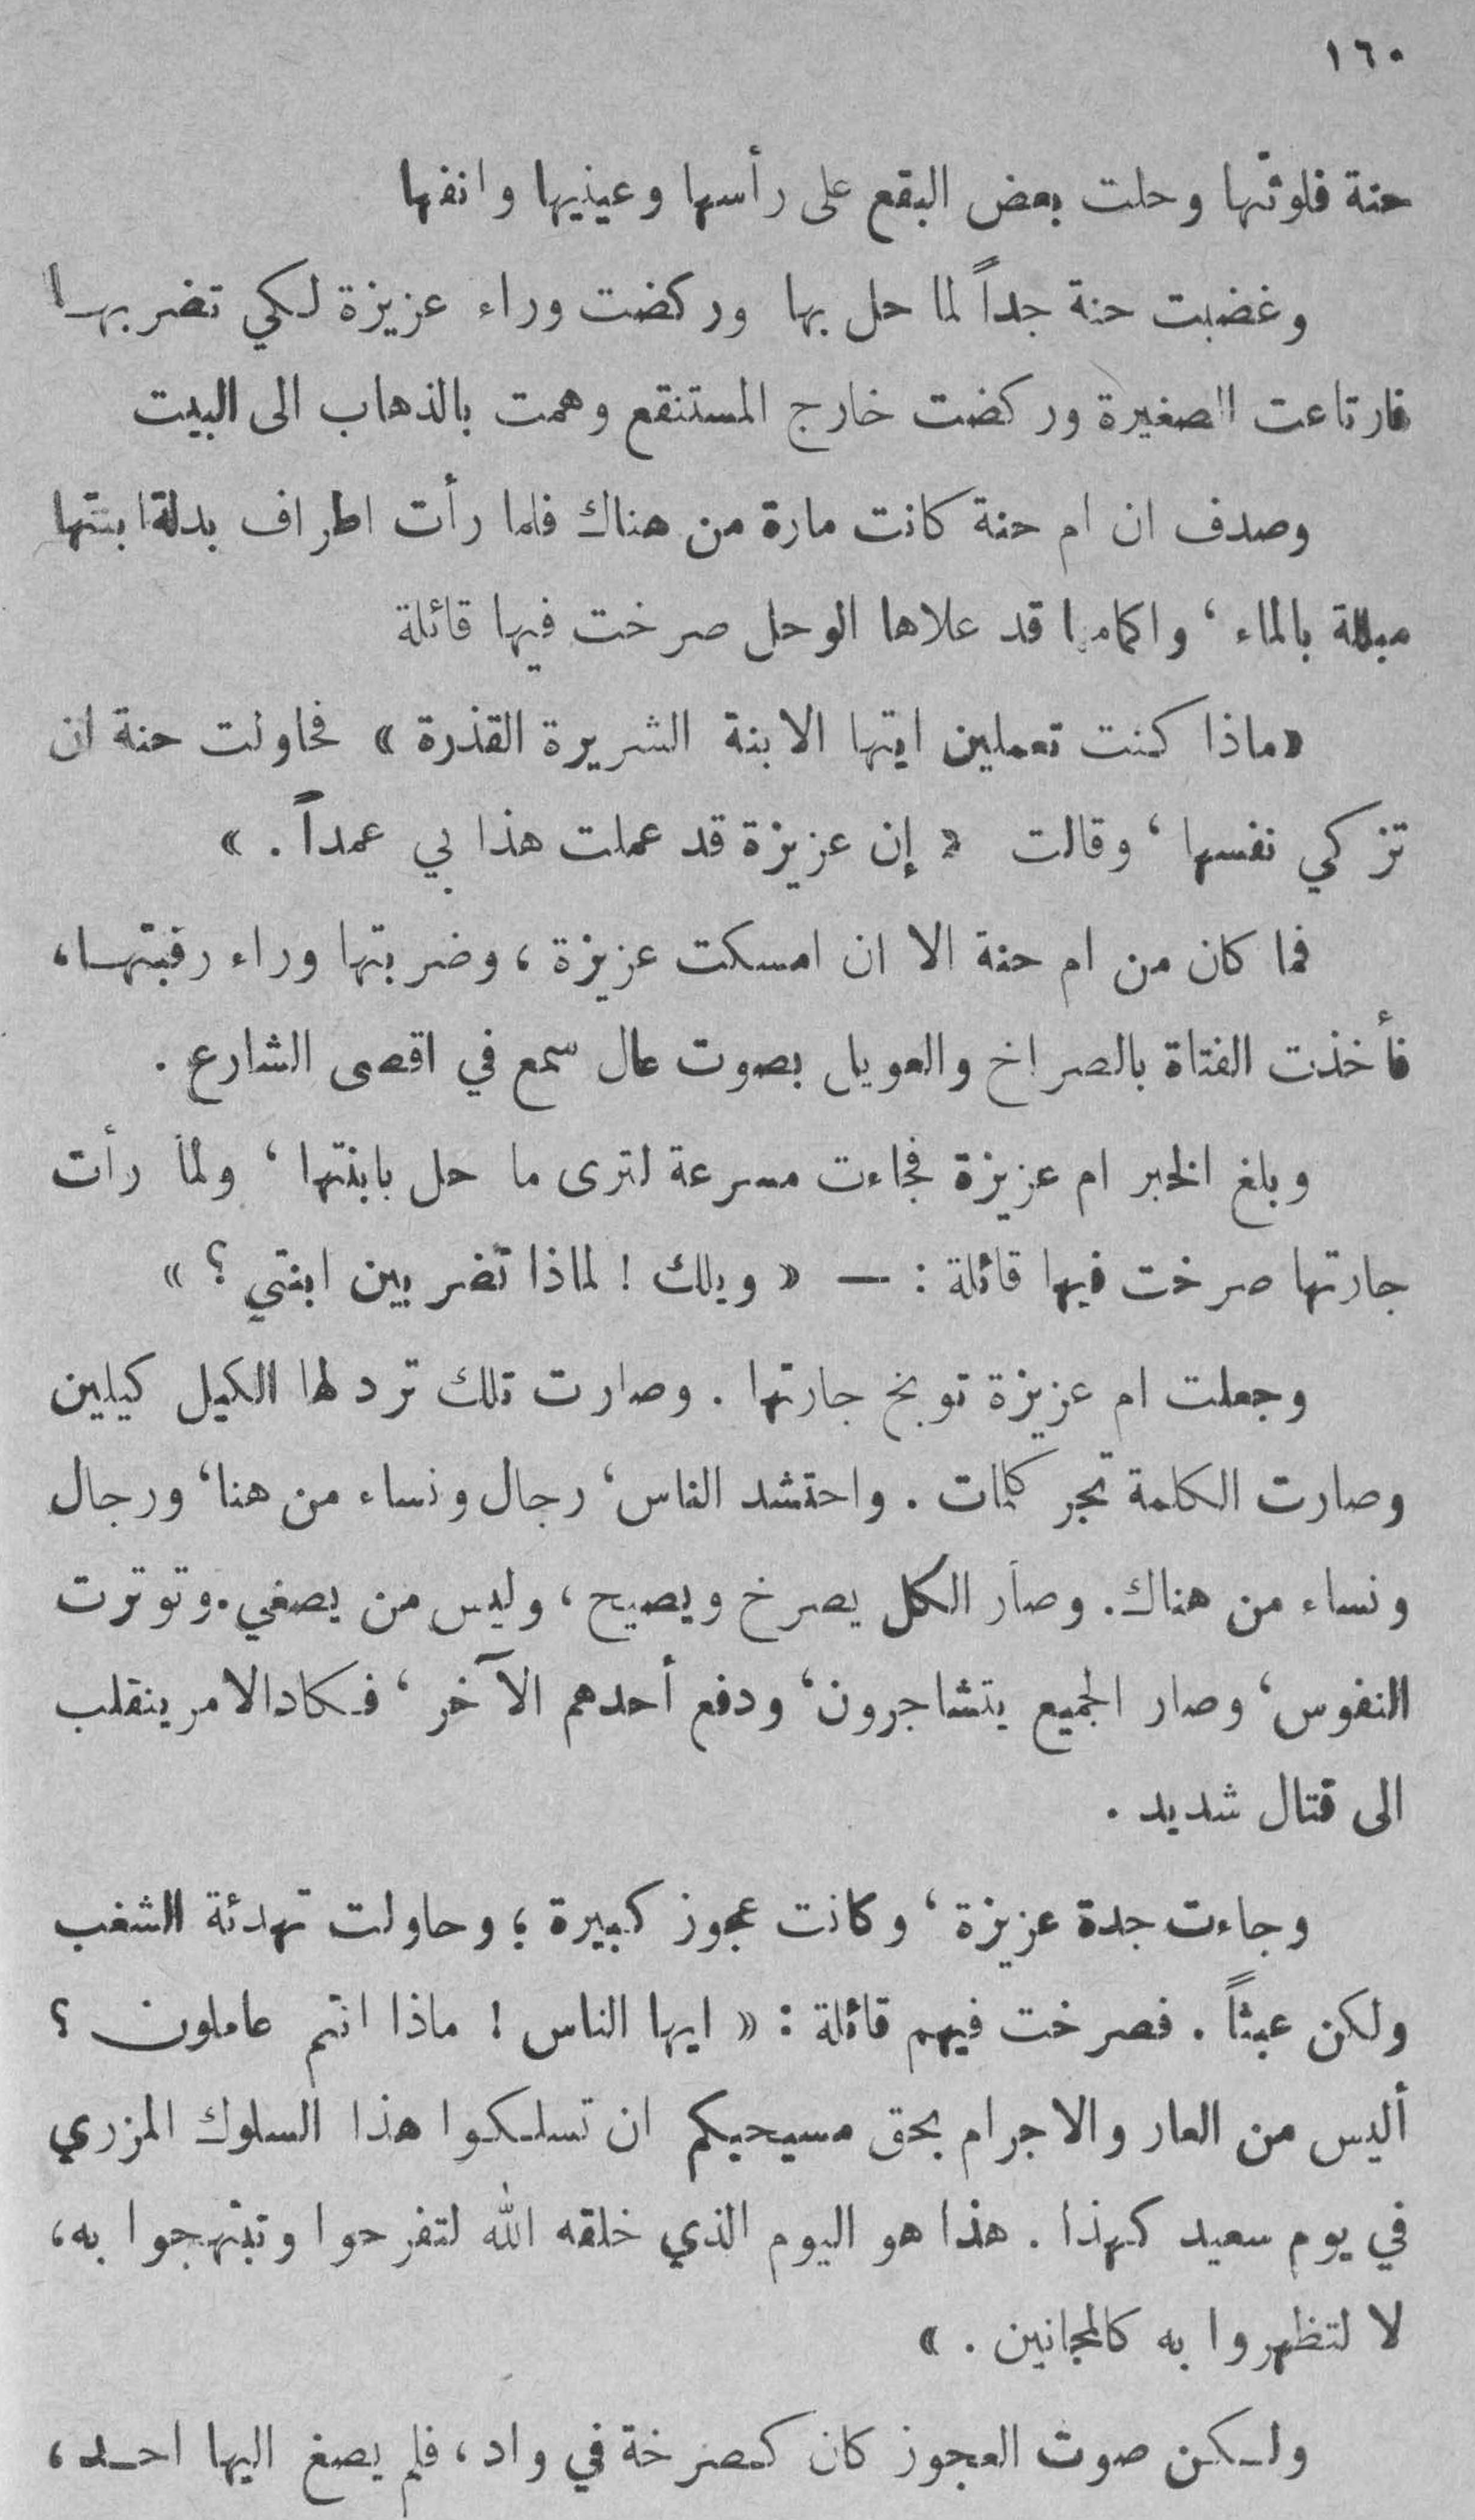 ١٦٠
حنة فلوثتها وحلت بعض البقع على رأسها وعينيها وانفها
وغضبت حنة جداً لما حل بها وركضت وراء عزيزة لكي تضربها
فارتاعت الصغيرة وركضت خارج المستنقع وهمت بالذهاب الى البيت
وصدف ان ام حنة كانت مارة من هناك فلما رأت اطراف بدلة ابنتها
مبللة بالماء، واكمامها قد علاها الوحل صرخت فيها قائلة
«ماذا كنت تعملين ايتها الابنة الشريرة القذرة» فحاولت حنة ان
تزكي نفسها، وقالت « إن عزيزة قد عملت هذا بي عمداً. »
فما كان من ام حنة الا ان امسكت عزيزة، وضربتها وراء رقبتها،
فأخذت الفتاة بالصراخ والعويل بصوت عال سمع في اقصى الشارع.
وبلغ الخبر ام عزيزة فجاءت مسرعة لترى ما حل بابنتها، ولما رأت
جارتها صرخت فيها قائلة: — « ويلك! لماذا تضربين ابنتي؟ »
وجعلت ام عزيزة توبخ جارتها. وصارت تلك ترد لها الكيل كيلين
وصارت الكلمة تجر كلمات. واحتشد الناس، رجال ونساء من هنا، ورجال
ونساء من هناك. وصار الكل يصرخ ويصيح، وليس من يصغي. وتوترت
النفوس، وصار الجميع يتشاجرون، ودفع أحدهم الآخر، فكاد الامر ينقلب
الى قتال شديد.
وجاءت جدة عزيزة، وكانت عجوز كبيرة؛ وحاولت تهدئة الشغب
ولكن عبثاً. فصرخت فيهم قائلة: « ايها الناس! ماذا انتم عاملون؟
أليس من العار والاجرام بحق مسيحيكم ان تسلكوا هذا السلوك المزري
في يوم سعيد كهذا. هذا هو اليوم الذي خلقه الله لتفرحوا وتبتهجوا به،
لا لتظهروا به كالمجانين. »
ولكن صوت العجوز كان كصرخة في واد، فلم يصغ اليها احد،